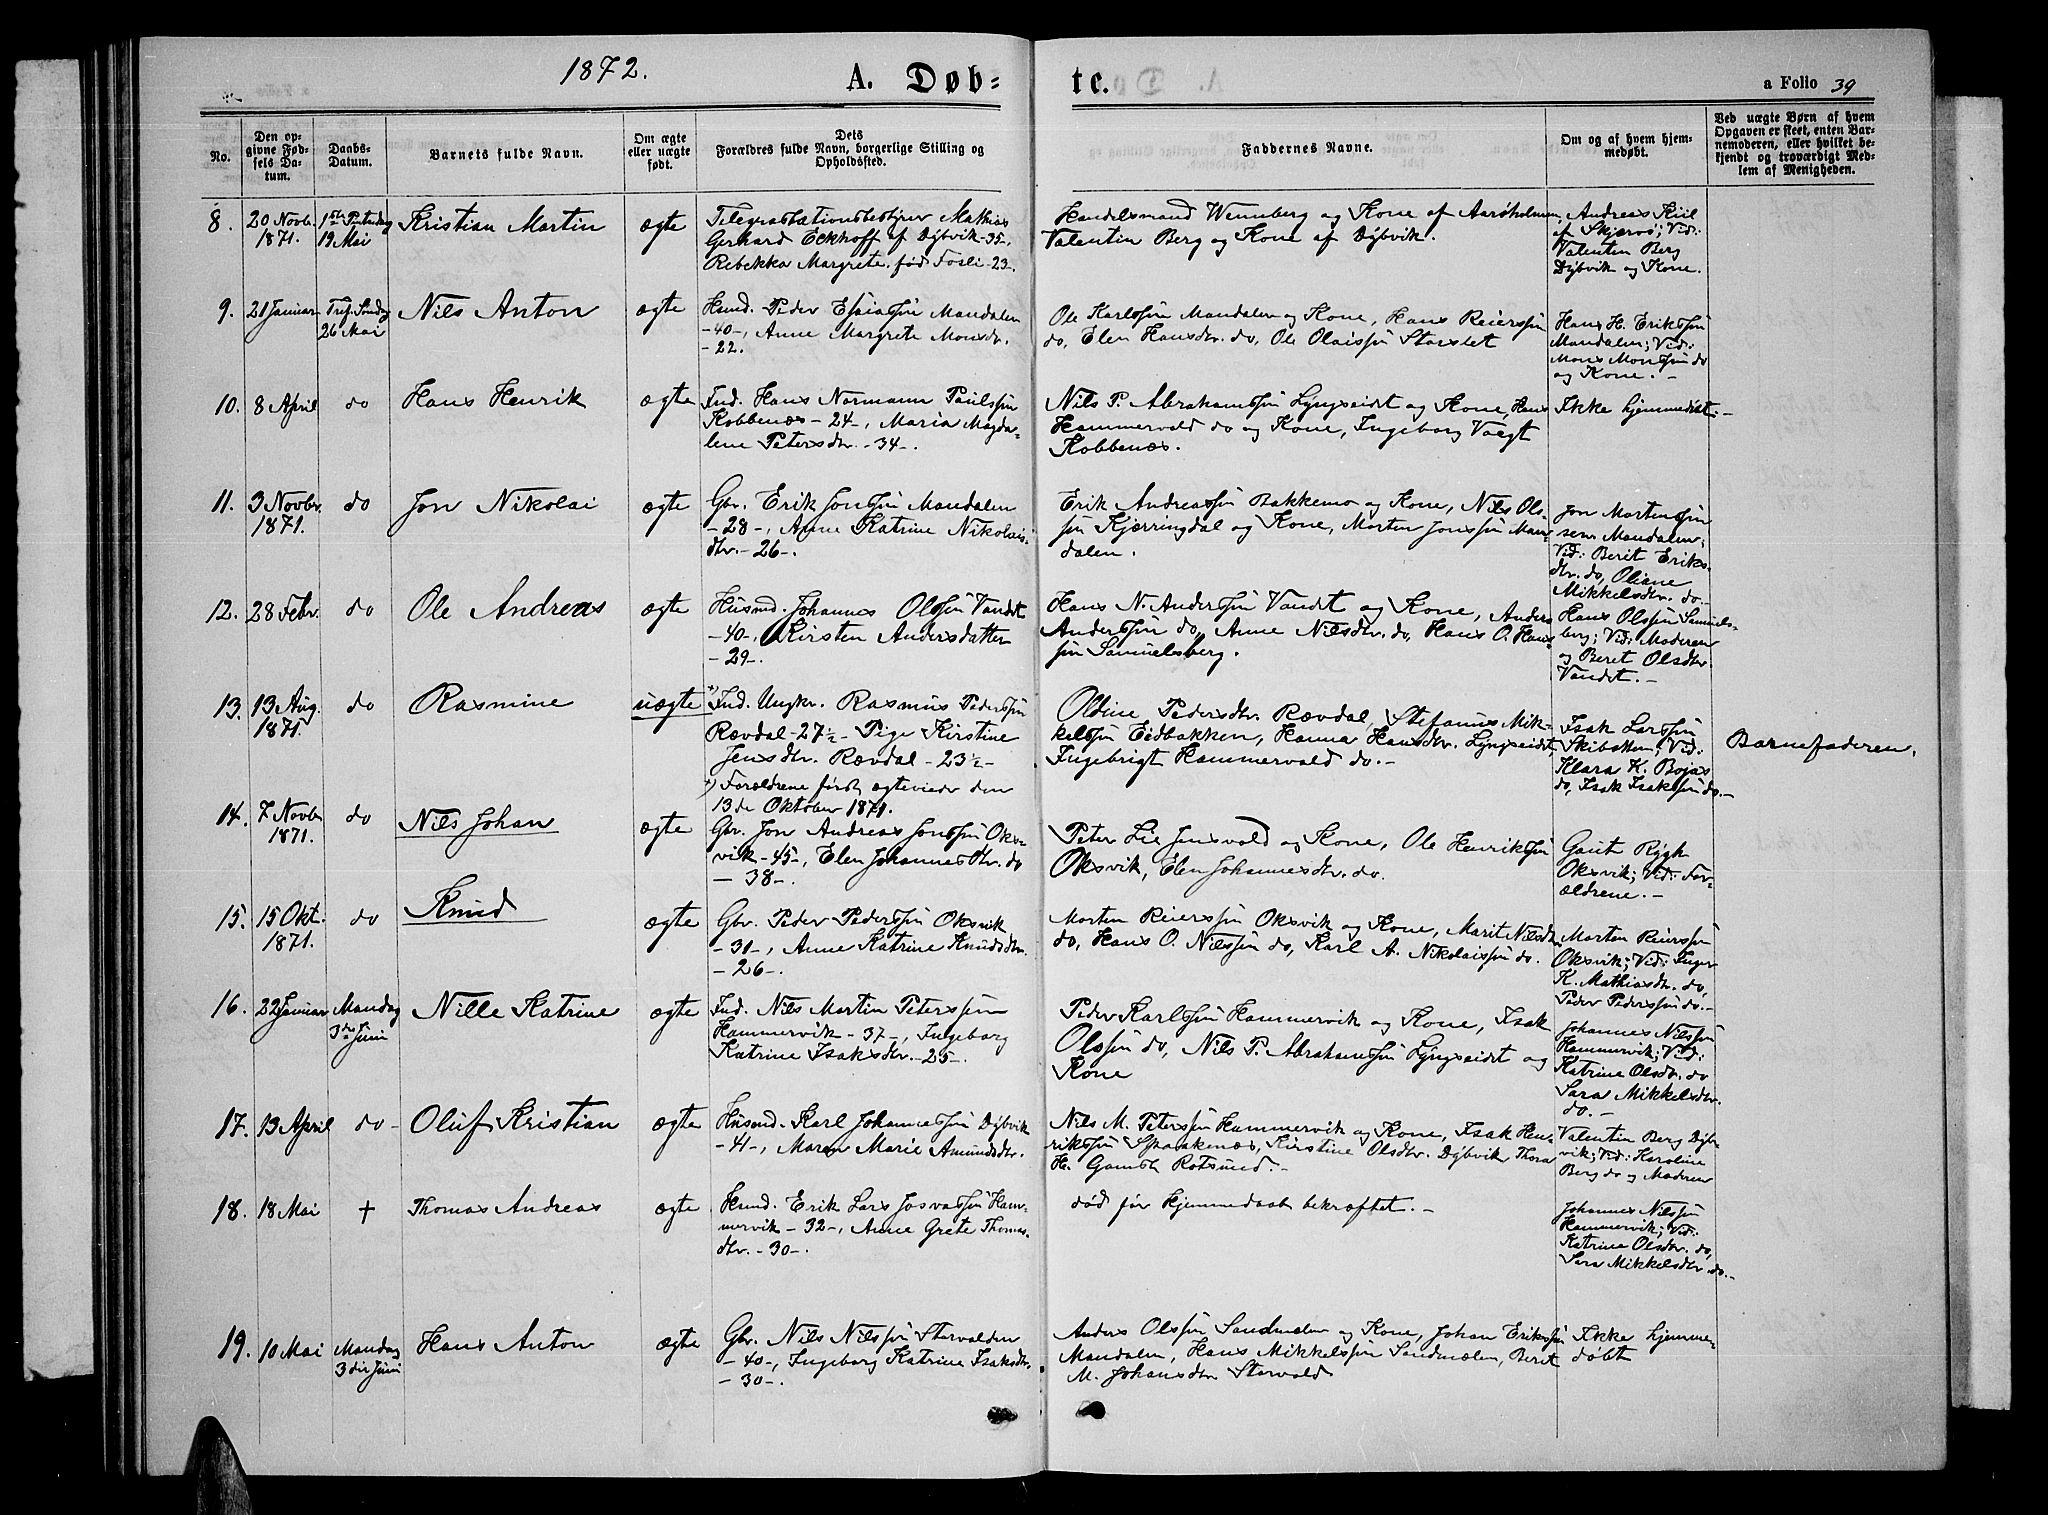 1872.
A. Døb-
te.
a Folio 39
No.
Den op-
givne Fød-
sels Da-
tum.
Daabs-
Datum.
Barnets fulde Navn.
Om ægte
eller uægte
født.
Dets
Forældres fulde Navn, borgerlige Stilling og
Opholdssted.
Faddernes Navne.
Om og af hvem hjem-
medøbt.
Ved uægte Børn af hvem
Opgaven er skeet, enten Bar-
nemoderen, eller hvilket be-
kjendt og troværdigt Med-
lem af Menigheden.
8.
20 Novb.
1871.
1ste Pintsedag
19 Mai
Kristian Martin
ægte
Telegrafstationsbestyrer Mathias
Gerhard Eckhoff af Dybvik -35-,
Rebekka Margrete født Fosli -23-.
Handelsmand Wennberg og Kone af Aarøholmen,
Valentin Berg og Kone af Dybvik.
Andreas Kiil
af Skjervø; Vid.:
Valentin Berg
Dybvik og Kone.
9.
21 Januar
Tref. Søndag
26 Mai
Nils Anton
ægte
Husmd. Peder Esaiassøn Mandalen
-40-, Anne Margrete Monsdr.
-22.
Ole Karlssøn Mandalen og Kone, Hans Reierssøn
do, Elen Hansdtr. do, Ole Olaissøn Storslet
Hans H. Erikssøn
Mandalen; Vid.:
Mons Monssøn do
og Kone.-
10.
8 April
do
Hans Henrik
ægte
Ind. Hans Normann Paulssøn
Kobbenæs -24-, Maria Magda-
lene Petersdtr. -34-.
Nils P. Abrahamssøn Lyngseidet og Kone, Hans
Hammervald do og Kone, Ingeborg Voegt
Kobbenæs.
Ikke hjemmedøbt.-
11.
3 Novbr.
1871.
do
Jon Nikolai
ægte
Gbr. Erik Jonssøn Mandalen
-28-, Anne Katrine Nikolais-
dtr. -26-.
Erik Andreassøn Bakkemo og Kone, Nils Ols-
søn Kjerringdal og Kone, Morten Jonssøn Man-
dalen.
Jon Mortenssøn
sen. Mandalen;
Vid.: Berit Eriks-
dtr. do, Oliane
Mikkelsdtr. do-
12.
28 Febr.
do
Ole Andreas
ægte
Husmd. Johannes Olssøn Vandet
-40-, Kirsten Andersdatter
-29-.
Hans N. Anderssøn Vandet og Kone, Anders
Anderssøn do, Anne Nilsdtr. do, Hans O. Hans-
søn Samuelsberg.
Hans Olssøn Samuels-
berg; Vid.: Moderen
og Beret Olsdtr.
Vandet.-
13.
13 Aug.
1871.
do
Rasmine
uægte
*) Ind. Ungkr. Rasmus Pederssøn
Rævdal -27½- Pige Kirstine
Jensdtr. Rævdal -23½-
*) Forældrene først ægteviede den
13de Oktober 1871.
Oldine Pedersdtr. Rævdal, Stefanus Mik-
kelssøn Eidbakken, Hanna Hansdtr. Lyngseidet,
Ingebrigt Hammervald do.-
Isak Larssøn
Skibotten; Vid.:
Klara K. Bojas
do, Isak Isakssøn do.-
Barnefaderen.
14.
7 Novbr
1871.
do
Nils Johan
ægte
Gbr. Jon Andreas Jonssøn Oks-
vik -45-, Elen Johannesdtr. do
-38-.
Peter Lie Jensvold og Kone, Ole Henrikssøn
Oksvik, Elen Johannesdtr. do.
Gaut Rygh
Oksvik; Vid.: For-
ældrene.-
15.
15 Okt.
1871.
do
Knud
ægte
Gbr. Peder Pederssøn Oksvik
-31-, Anne Katrine Knudsdtr.
-26-
Morten Reierssøn Oksvik og Kone, Marit Nilsdtr.
do, Hans O. Nilssøn do, Karl A. Nikolaissøn do.
Morten Reierssøn
Oksvik; Vid.: Inger
K. Mathiasdtr. do,
Peder Pederssøn do.-
16.
22 Januar
Mandag
3die Juni
Nille Katrine
ægte
Ind. Nils Martin Peterssøn
Hammervik -37-, Ingeborg
Katrine Isaksdtr. -25-.
Peder Karlssøn Hammervik og Kone, Isak
Olssøn do, Nils P. Abrahamssøn Lyngseidet og
Kone
Johannes Nilssøn
Hammervik; Vid.:
Katrine Olsdtr. do
Sara Mikkelsdtr.
do.-
17.
13 April
do-
Oluf Kristian
ægte
Husmd. Karl Johannessøn Dybvik
-41-, Maren Marie Amundsdtr.
Nils M. Peterssøn Hammervik og Kone, Isak Hen-
rikssøn Spaakenæs, Kirstine Olsdtr. Dybvik, Thora
H. Gamst Rotsund.-
Valentin Berg Dyb-
vik; Vid.: Karoline
Berg do og Moderen
18.
18 Mai
†
Thomas Andreas
ægte
Husmd. Erik Lars Josvassøn Ham-
mervik -32-, Anne Grete Thomas-
dtr. -30-.
død før Hjemmedaab bekræftet.-
Johannes Nilssøn
Hammervik; Vid.:
Katrine Olsdtr. do,
Sara Mikkelsdtr. do.-
19.
10 Mai
Mandag
3die Juni
Hans Anton
ægte
Gbr. Nils Nilssøn Storvolden
-40-, Ingeborg Katrine Isaksdtr.
-30-.
Anders Olssøn Sandmelen og Kone, Johan Erikssøn
Mandalen, Hans Mikkelssøn Sandmælen, Berit
M. Johansdtr Storvold
Ikke hjemme-
døbt